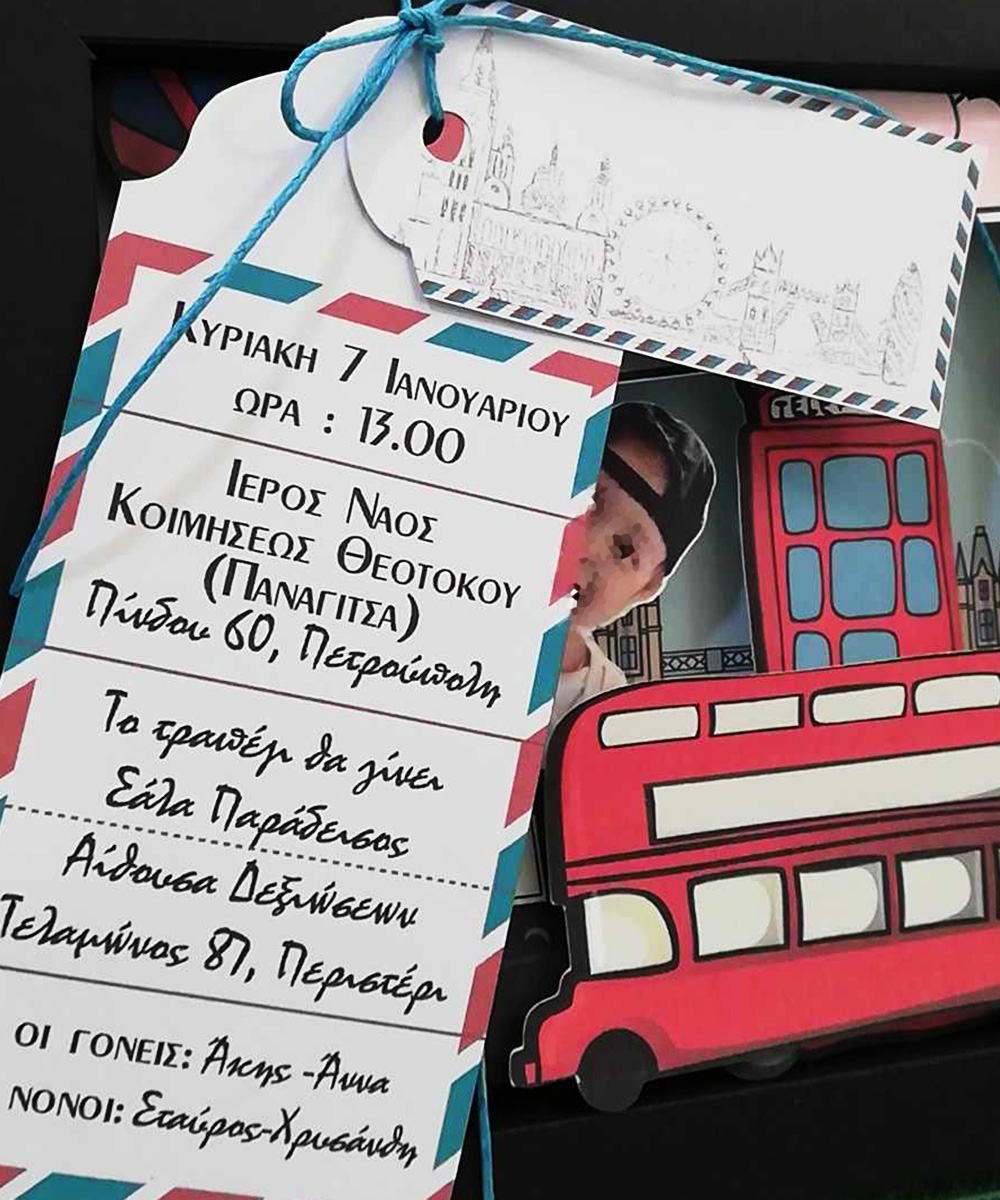 ΚΥΡΙΑΚΗ 7 ΙΑΝΟΥΑΡΙΟΥ
ΩΡΑ : 13.00
ΙΕΡΟΣ ΝΑΟΣ
ΚΟΙΜΗΣΕΩΣ ΘΕΟΤΟΚΟΥ
(ΠΑΝΑΓΙΤΣΑ)
Πίνδου 60, Πετρούπολη
Το τραπέζι θα γίνει
Σάλα Παράδεισος
Αίθουσα Δεξιώσεων
Τελαμώνος 87, Περιστέρι
ΟΙ ΓΟΝΕΙΣ: Άκης -Άννα
ΝΟΝΟΙ: Σταύρος-Χρυσάνθη